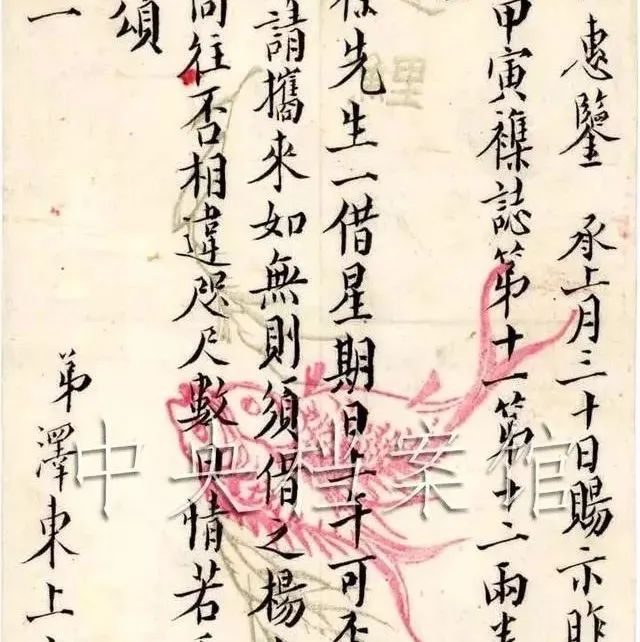 惠鑒 承上月三十日賜示昨
甲寅襍誌第十一第十二兩
先生一借星期日上午可否
請攜來如無則須借之楊
同往否相違咫尺數日情若
頌
弟澤東上
中央档案馆